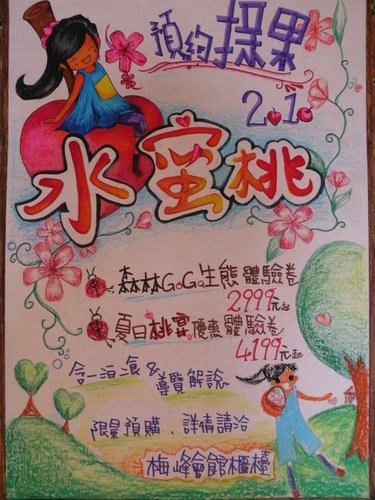 預約採果
2.1.
水蜜桃
森林GoGo生態體驗卷
2999元起
夏日桃宴優惠體驗卷
4199元起
含一泊二食&
導覽解說
限量預購、詳情請洽
梅峰會館櫃檯